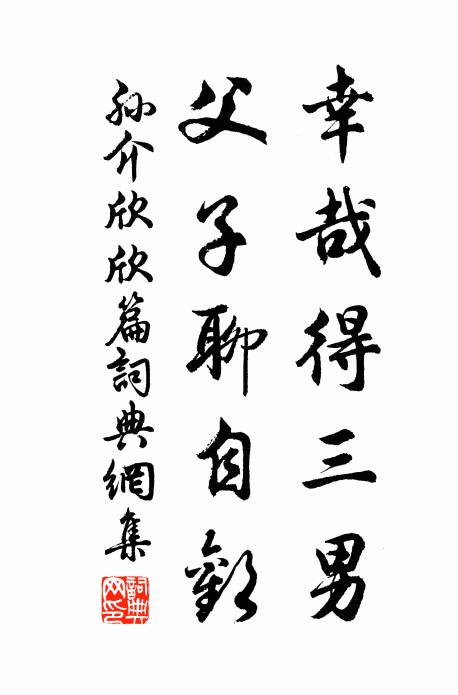 幸哉得三男
父子聊自勸
孫介欣欣篇詞典網集
詞典网印